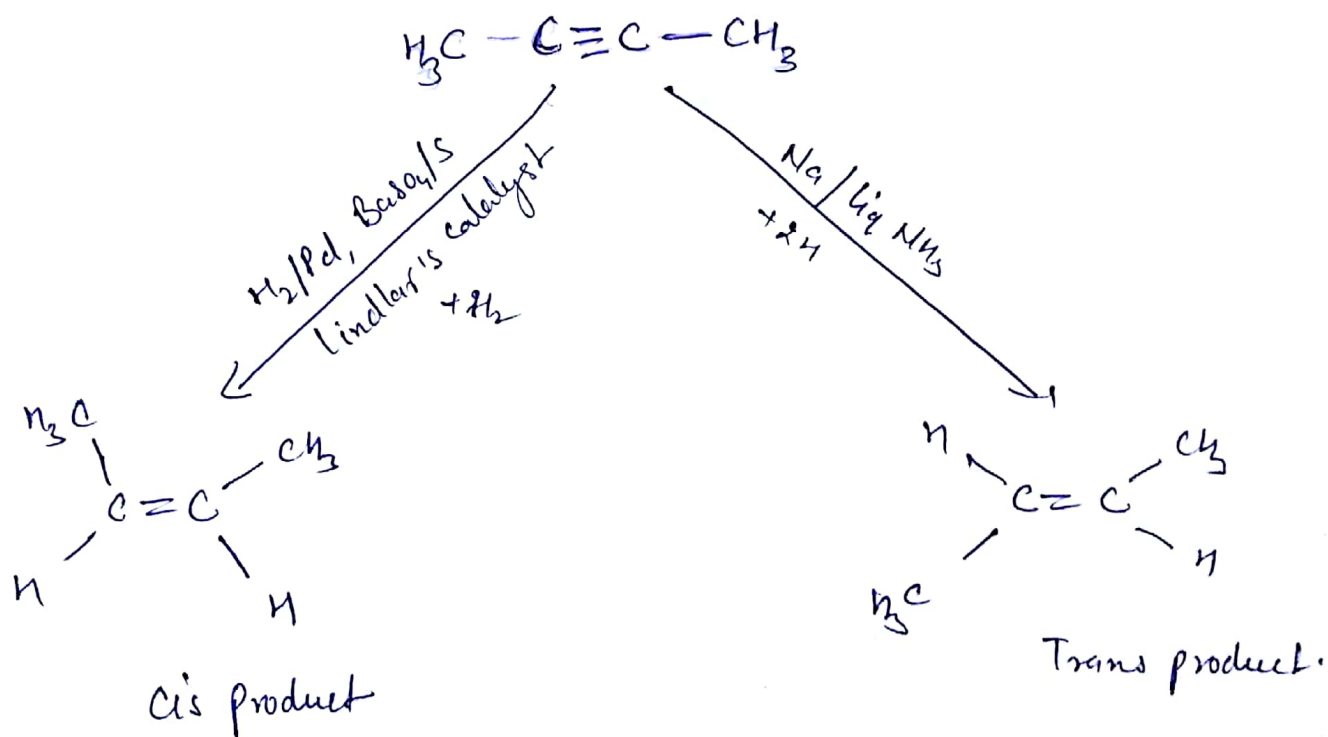 H₃C – C≡C – CH₃
H₂/Pd, BaSO₄/S
Lindlar's catalyst
+H₂
Na/liq NH₃
+2H
H₃C
CH₃
C=C
H
H
Cis product
H
CH₃
C=C
H₃C
H
Trans product.